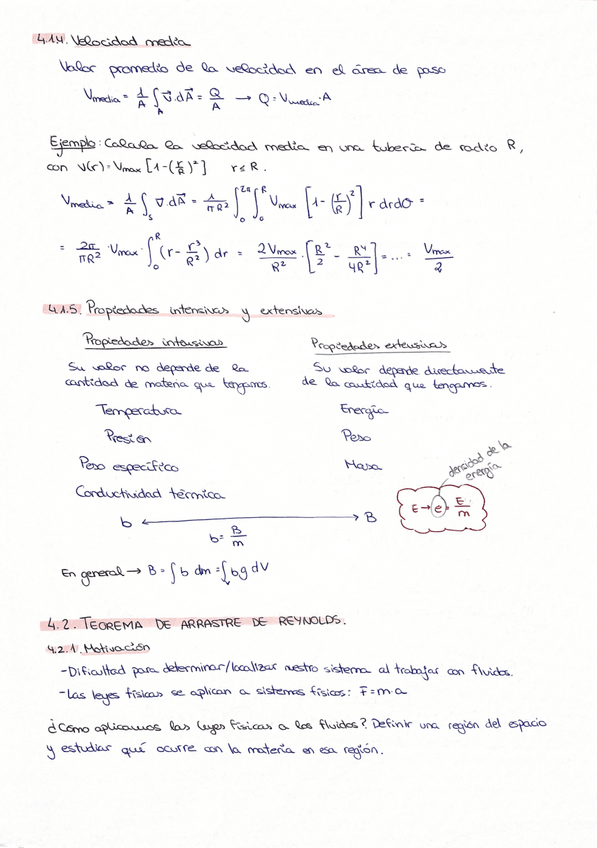 4.1.4. Velocidad media
Valor promedio de la velocidad en el área de paso
Vmedia = 1/A ∫_A v⃗·dA⃗ = Q/A → Q = Vmedia·A
Ejemplo: Calcula la velocidad media en una tubería de radio R,
con v(r) = Vmax [1-(r/R)²] r ≤ R.
Vmedia = 1/A ∫_S v⃗·dA⃗ = 1/πR² ∫_0^2π ∫_0^R Vmax [1-(r/R)²] r dr dθ =
= 2π/πR² · Vmax · ∫_0^R (r - r³/R²) dr = 2Vmax/R² · [R²/2 - R⁴/4R²] = ... = Vmax/2
4.1.5. Propiedades intensivas y extensivas
Propiedades intensivas Propiedades extensivas
Su valor no depende de la Su valor depende directamente
cantidad de materia que tengamos. de la cantidad que tengamos.
Temperatura Energía
Presión Peso
Peso específico Masa
Conductividad térmica
densidad de la
energía
E → e = E/m
b ↔ B
b = B/m
En general → B = ∫ b dm = ∫_v b ϱ dV
4.2. TEOREMA DE ARRASTRE DE REYNOLDS.
4.2.1. Motivación
-Dificultad para determinar/localizar nuestro sistema al trabajar con fluidos.
-Las leyes físicas se aplican a sistemas físicos: F = m·a
¿Cómo aplicamos las leyes físicas a los fluidos? Definir una región del espacio
y estudiar qué ocurre con la materia en esa región.